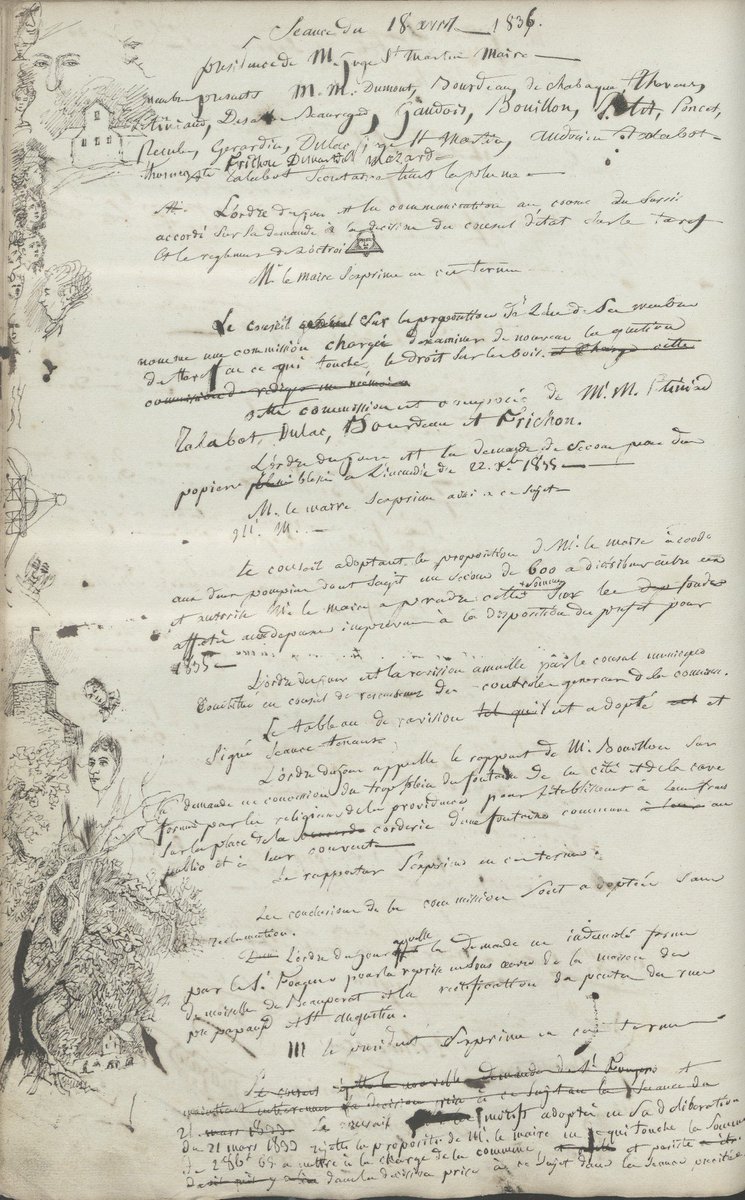 Séance du 18 avril 1836.
présidence de M. Juge St Martin Maire
membres présents M.M. Dumont, Bourdeau, de chabaque, thevenin,
Gaudois, Bouillon, Petit, Poncet,
Gerardin, Dulac, Juge St Martin, Audouin Talabot
Frichon Dumartial Mazard
Talabot Secrétaire tient la plume
L'ordre du jour est la communication au conseil du sursis
accordé sur la demande à la décision du conseil d'état sur le tarif
et le reglement de l'octroi
M. le maire s'exprime en ces termes
Le conseil sur la proposition de l'un de ses membres
nomme une commission chargée d'examiner de nouveau la question
du tarif en ce qui touche le droit sur les bois. et charge cette
commission de rediger un mémoire
cette commission est composée de M. M.
Talabot, Dulac, Bourdeau et Frichon.
L'ordre du jour est la demande de secours pour deux
pompiers blessés à l'incendie de 22 1835
M. le maire s'exprime ainsi à ce sujet
M. M.
Le conseil adoptant la proposition de M. le maire accorde
aux deux pompiers dont s'agit un secours de 600 à distribuer entre eux
et autorise M. le maire a prendre cette somme sur les fonds
affectés aux depenses imprévues à la disposition du préfet pour
1835
L'ordre du jour est la revision annuelle par le conseil municipal
en conseil de recensement des controles generaux de la commune.
Le tableau de revision tel qu'il est adopté et
signé séance tenante.
L'ordre du jour appelle le rapport de M. Bouillon sur
la demande en concession du trop plein du fontaine de la cité et de la cave
formé par les religieuses de la providence pour l'établissement à leurs frais
sur la place de la corderie d'une fontaine commune au
public et à leur couvent
Le rapporteur s'exprime en ces termes.
Les conclusions de la commission sont adoptées sans
reclamation.
L'ordre du jour appelle la demande en indemnité formée
par le Sr pour la reprise en sous œuvre de la maison de
demoiselle de Beauperat et la rectification des pentes des rues
pré papaud et St Augustin.
M le président s'exprime en ces termes
Le conseil la nouvelle demande du Sr et
maintient la décision prise à ce sujet dans la séance du
21 mars 1833 Le conseil motifs adoptés en sa délibération
du 21 mars 1833 rejette la proposition de M. le maire en ce qui touche la somme
de 286 65 à mettre à la charge de la commune et persiste
dans la décision prise à ce sujet dans la séance précitée